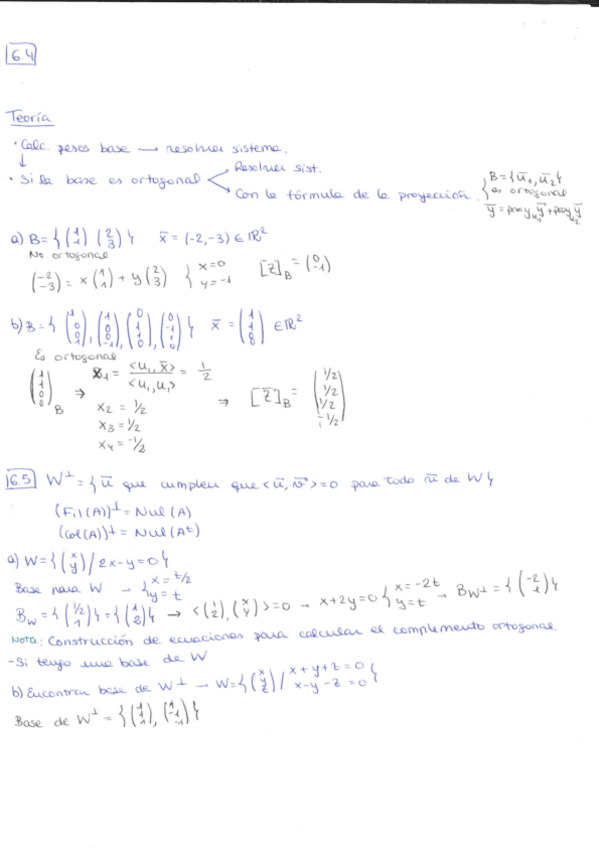 6.4
Teoría
· Calc. pesos base → resolver sistema.
↓
· Si la base es ortogonal
Resolver sist.
Con la fórmula de la proyección.
B = {ū₁, ū₂}
es ortogonal
ȳ = proy_u₁ ȳ + proy_u₂ ȳ
a) B = { (1 1) (2 3) } x̄ = (-2, -3) ∈ ℝ²
No ortogonal
(-2 -3) = x (1 1) + y (2 3) { x = 0 y = -1 [z̄]_B = (0 -1)
b) B = { (1 0 0 1), (1 0 0 -1), (0 1 1 0), (0 -1 1 0) } x̄ = (1 1 0 0) ∈ ℝ²
Es ortogonal
(1 1 0 0)_B ⇒ x₁ = <u₁, x̄> / <u₁, u₁> = 1/2
x₂ = 1/2
x₃ = 1/2
x₄ = -1/2
⇒ [z̄]_B = (1/2 1/2 1/2 -1/2)
6.5 W⊥ = { ū que cumplen que <ū, v̄> = 0 para todo ū de W }
(Fil(A))⊥ = Nul(A)
(Col(A))⊥ = Nul(Aᵗ)
a) W = { (x y) / 2x - y = 0 }
Base para W → { x = t/2 y = t
B_W = { (1/2 1) } = { (1 2) } → <(1 2), (x y)> = 0 → x + 2y = 0 { x = -2t y = t → B_W⊥ = { (-2 1) }
Nota: Construcción de ecuaciones para calcular el complemento ortogonal.
- Si tengo una base de W
b) Encontrar base de W⊥ → W = { (x y z) / x + y + z = 0 x - y - z = 0 }
Base de W⊥ = { (1 1 1), (1 -1 -1) }